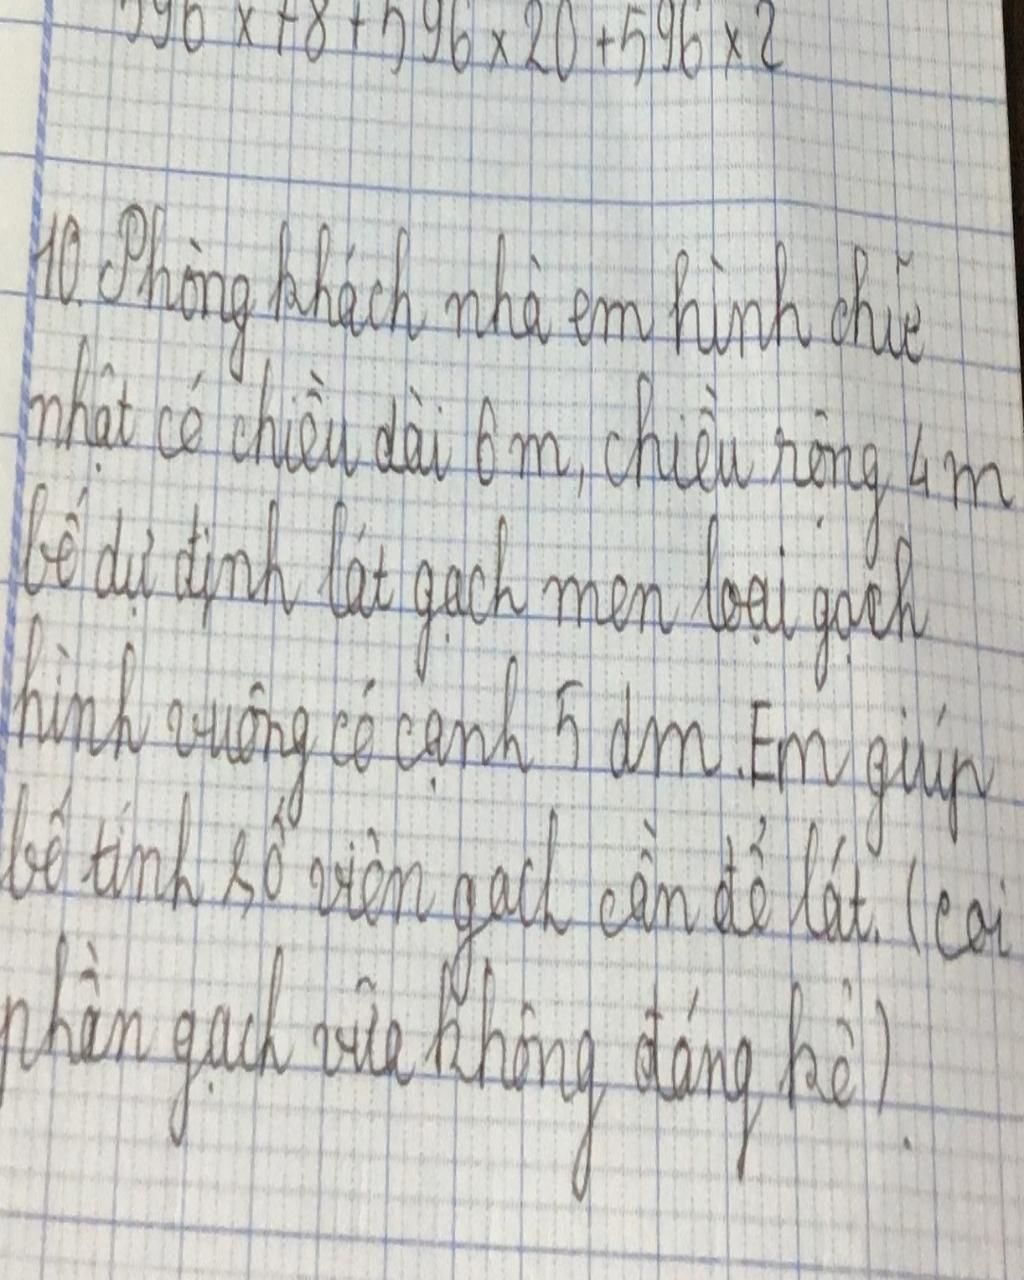 596 x 78 + 596 x 20 + 596 x 2
10. Phòng khách nhà em hình chữ
nhật có chiều dài 6 m, chiều rộng 4 m
bố dự định lát gạch men loại gạch
hình vuông có cạnh 5 dm. Em giúp
bố tính số viên gạch cần để lát. (coi
phần gạch vữa không đáng kể).